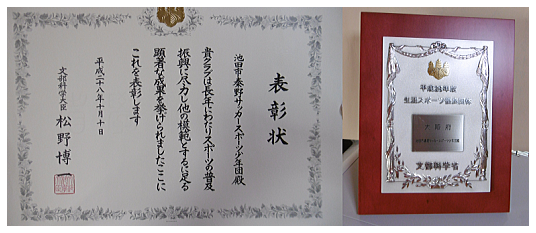 表彰状
池田市秦野サッカースポーツ少年団殿
貴クラブは長年にわたりスポーツの普及
振興に尽力し他の模範とするに足る
顕著な成果を挙げられましたここに
これを表彰します
平成二十八年十月十日
文部科学大臣
松野博一
平成28年度
生涯スポーツ優良団体
大阪府
文部科学省